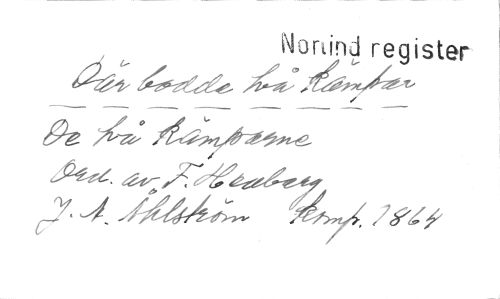 Norlind register
Där bodde två kämpar
De två kämparne
Ord. av F. Hedberg
J. N. Ahlström komp. 1864